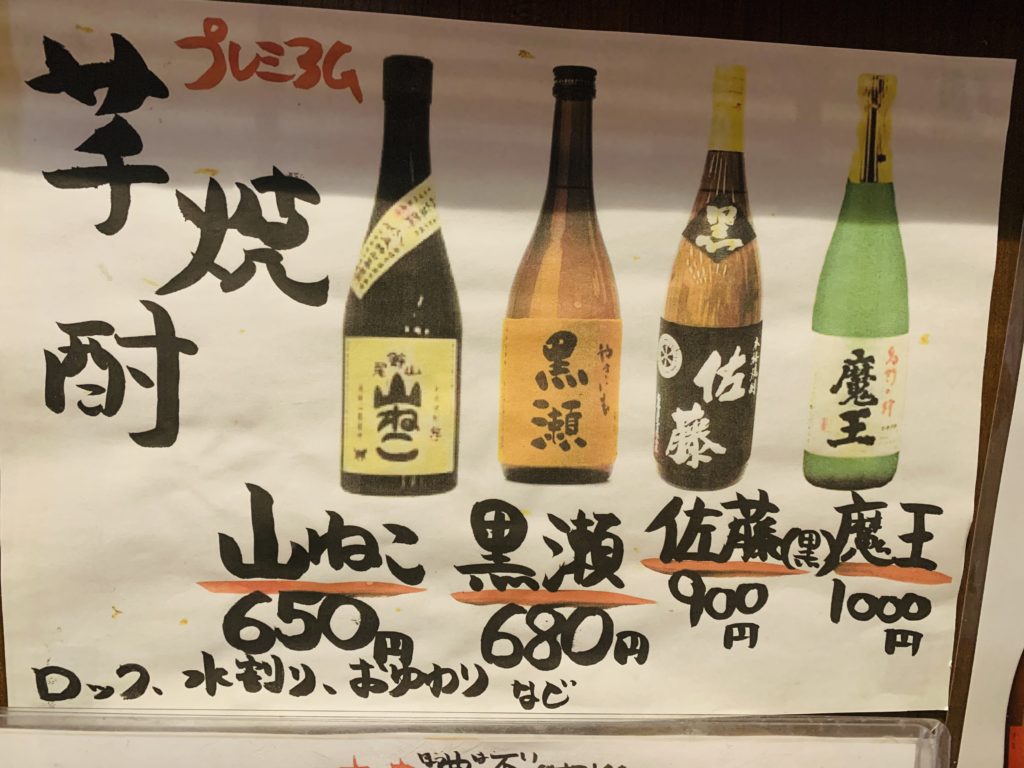 プレミアム
芋焼酎
山ねこ
黒瀬
やきいも
黒
佐藤
魔王
山ねこ
650円
黒瀬
680円
佐藤(黒)
900円
魔王
1000円
ロック、水割り、おゆわり など